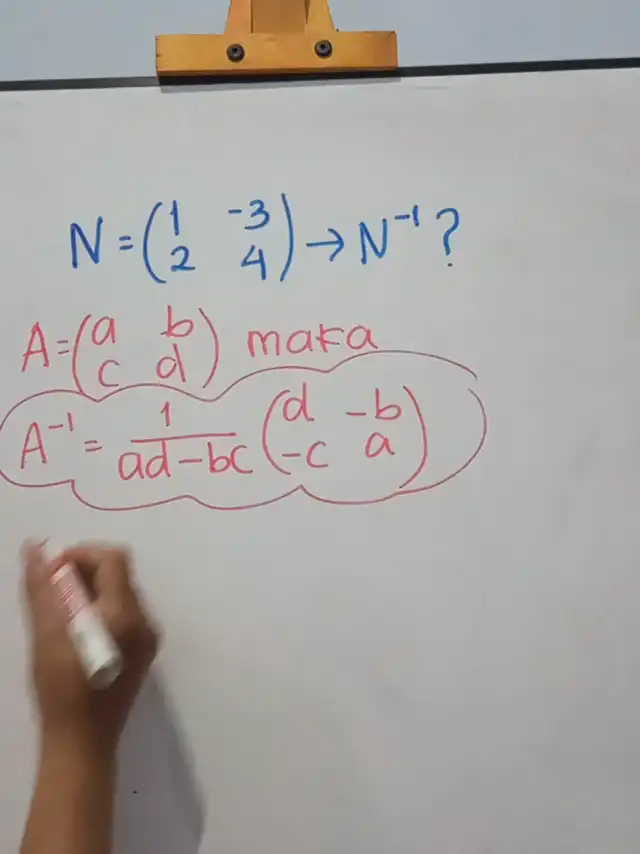 N = (1 -3
2 4) → N⁻¹ ?
A = (a b
c d) maka
A⁻¹ = 1/(ad-bc) (d -b
-c a)